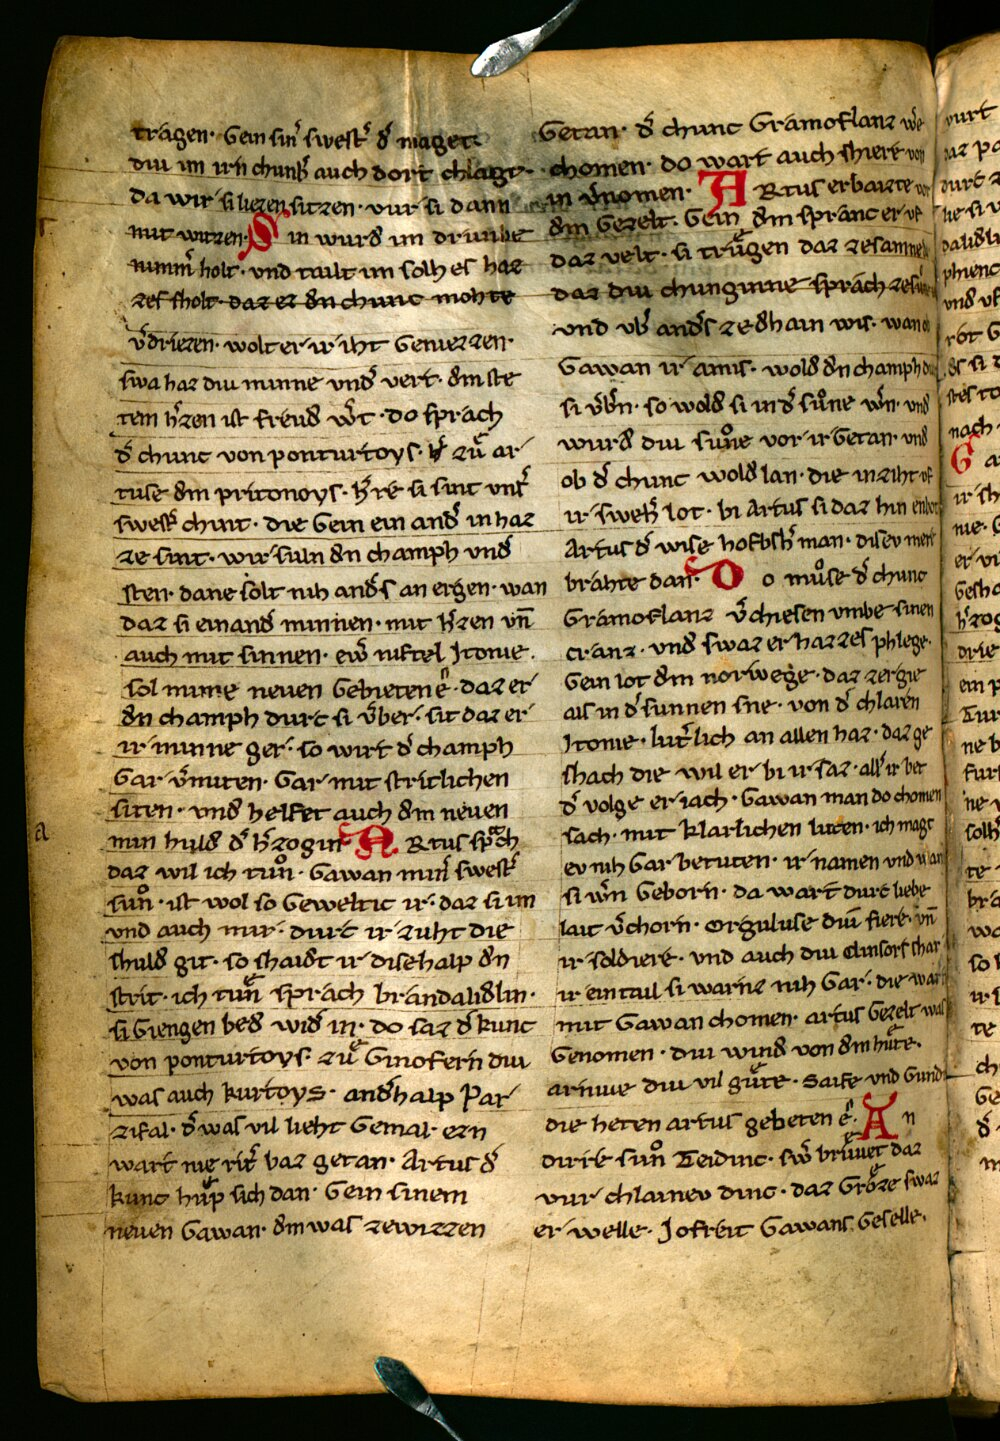 tragen· Gein sinˀ swestˀ dˀ maget·
diu im irˀn chunbˀ auch dort chlagt·
da wirˀ si liezen sitzen· vurˀ si dann
mit witzen· S in wurd im drinne
nimmˀ holt· vnd tailt im solhes haz
zes sholt· daz er dn chunc mohte
vˀdriezen· wolt er ir iht Geniezzen·
swa haz diu minne vndˀ vert· dm ste
tem hˀzen ist freud wˀt· do sprach
dˀ chunc von ponturtoys· zuͤ ar
tuse dm pritonoys· hˀre si sint vnsˀ
swestˀ chint· die Gein ein andˀ in haz
ze sint· wir suln dn champh vndˀ
sten· dane solt nih andˀs an ergen· wan
daz si ein andˀ minnen· mit hˀzen vn̄
auch mit sinnen· ewˀ niftel Itonie·
sol mime neuen Gebieten eˀ· daz er
dn champh durc si vˀber· sit daz er
ir minne ger· so wirt dˀ champh
Gar vˀmiten· Gar mit stritlichen
siten· vnd helfet auch dm neuen
min huld dˀ hˀzogin· A Rtus spͣch
daz wil ich tuͦn· Gawan minˀ swestˀ
suͦn· ist wol so Geweltic ir· daz si im
vnd auch mir· durc ir zuht die
shuld git· so shaidt ir disehalp dn
strit· ich tuͤn sprach brandalidlin·
si Giengen bed widˀ in· do saz dˀ kunc
von ponturtoys· zuͤ Ginofern diu
was auch kurtoys· andˀhalp Par
zifal· dˀ was vil lieht Gemal· ezn
wart nie ritˀ baz getan· Artus dˀ
kunc huͤp sich dan· Gein sinem
neuen Gawan· dm was zewizzen
Getan· dˀ chunc Gramoflanz wˀe
chomen· do wart auch shiere von
in vˀnomen· A Rtus erbaizte vor
dm Gezelt· Gein dm spranc er vf
daz velt· si truͤgen daz zesamne
daz diu chunginne sprach
vnd vbˀ andˀs zedhain wis· wan
Gawan ir amis· wold dn champh
si vˀbˀn· so wold si in dˀ suͦne wˀn· vnd
wurd diu suͦne vor ir Getan· vnd
ob dˀ chunc wold lan· die inziht vf
ir swehˀ lot· bi Artus si daz hin enbot
Artus dˀ wise hofbshˀ man· disev mere
brahte dan· D o muͦse dˀ chunc
Gramoflanz vˀchiesen vmbe sinen
cranz· vnd swaz er hazzes phlege·
Gein lot dm norwege· daz zergie
als in dˀ sunnen sne· von dˀ chlaren
Itonie· lutˀlich an allen haz· daz ge
shach die wil er bi ir saz· allˀ ir bet
dˀ volge er iach· Gawan man do chomen
sach· mit klarlichen luten· ich magt
ev nih Gar betuten· ir namen vnd wan
si wˀn Geborn· da wart durc liebe
lait vˀchorn· orguluse diu fiere· vn̄
ir soldiere· vnd auch diu clinsors shar
ir ein tail si warnz nih Gar· die warn
mit Gawan chomen· artus Gezelt was
Genomen· diu wind von dm huͤte·
arniue diu vil guͤte· Saife vnd Gund
die heten artus gebeten eˀ· A n
dirre suͦn teidinc· swˀ bruͤuet daz
vur chlainev dinc· daz Groͤze swaz
er welle· Jofreit Gawans Geselle·
a